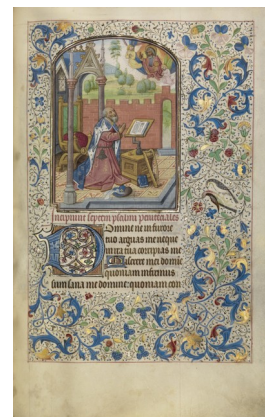 Incipiunt septem psalmi penitēciales
Domine ne in furore
tuo arguas me neque
in ira tua corripias me
Miserere mei domine
quoniam infirmus
sum sana me domine: quoniam con